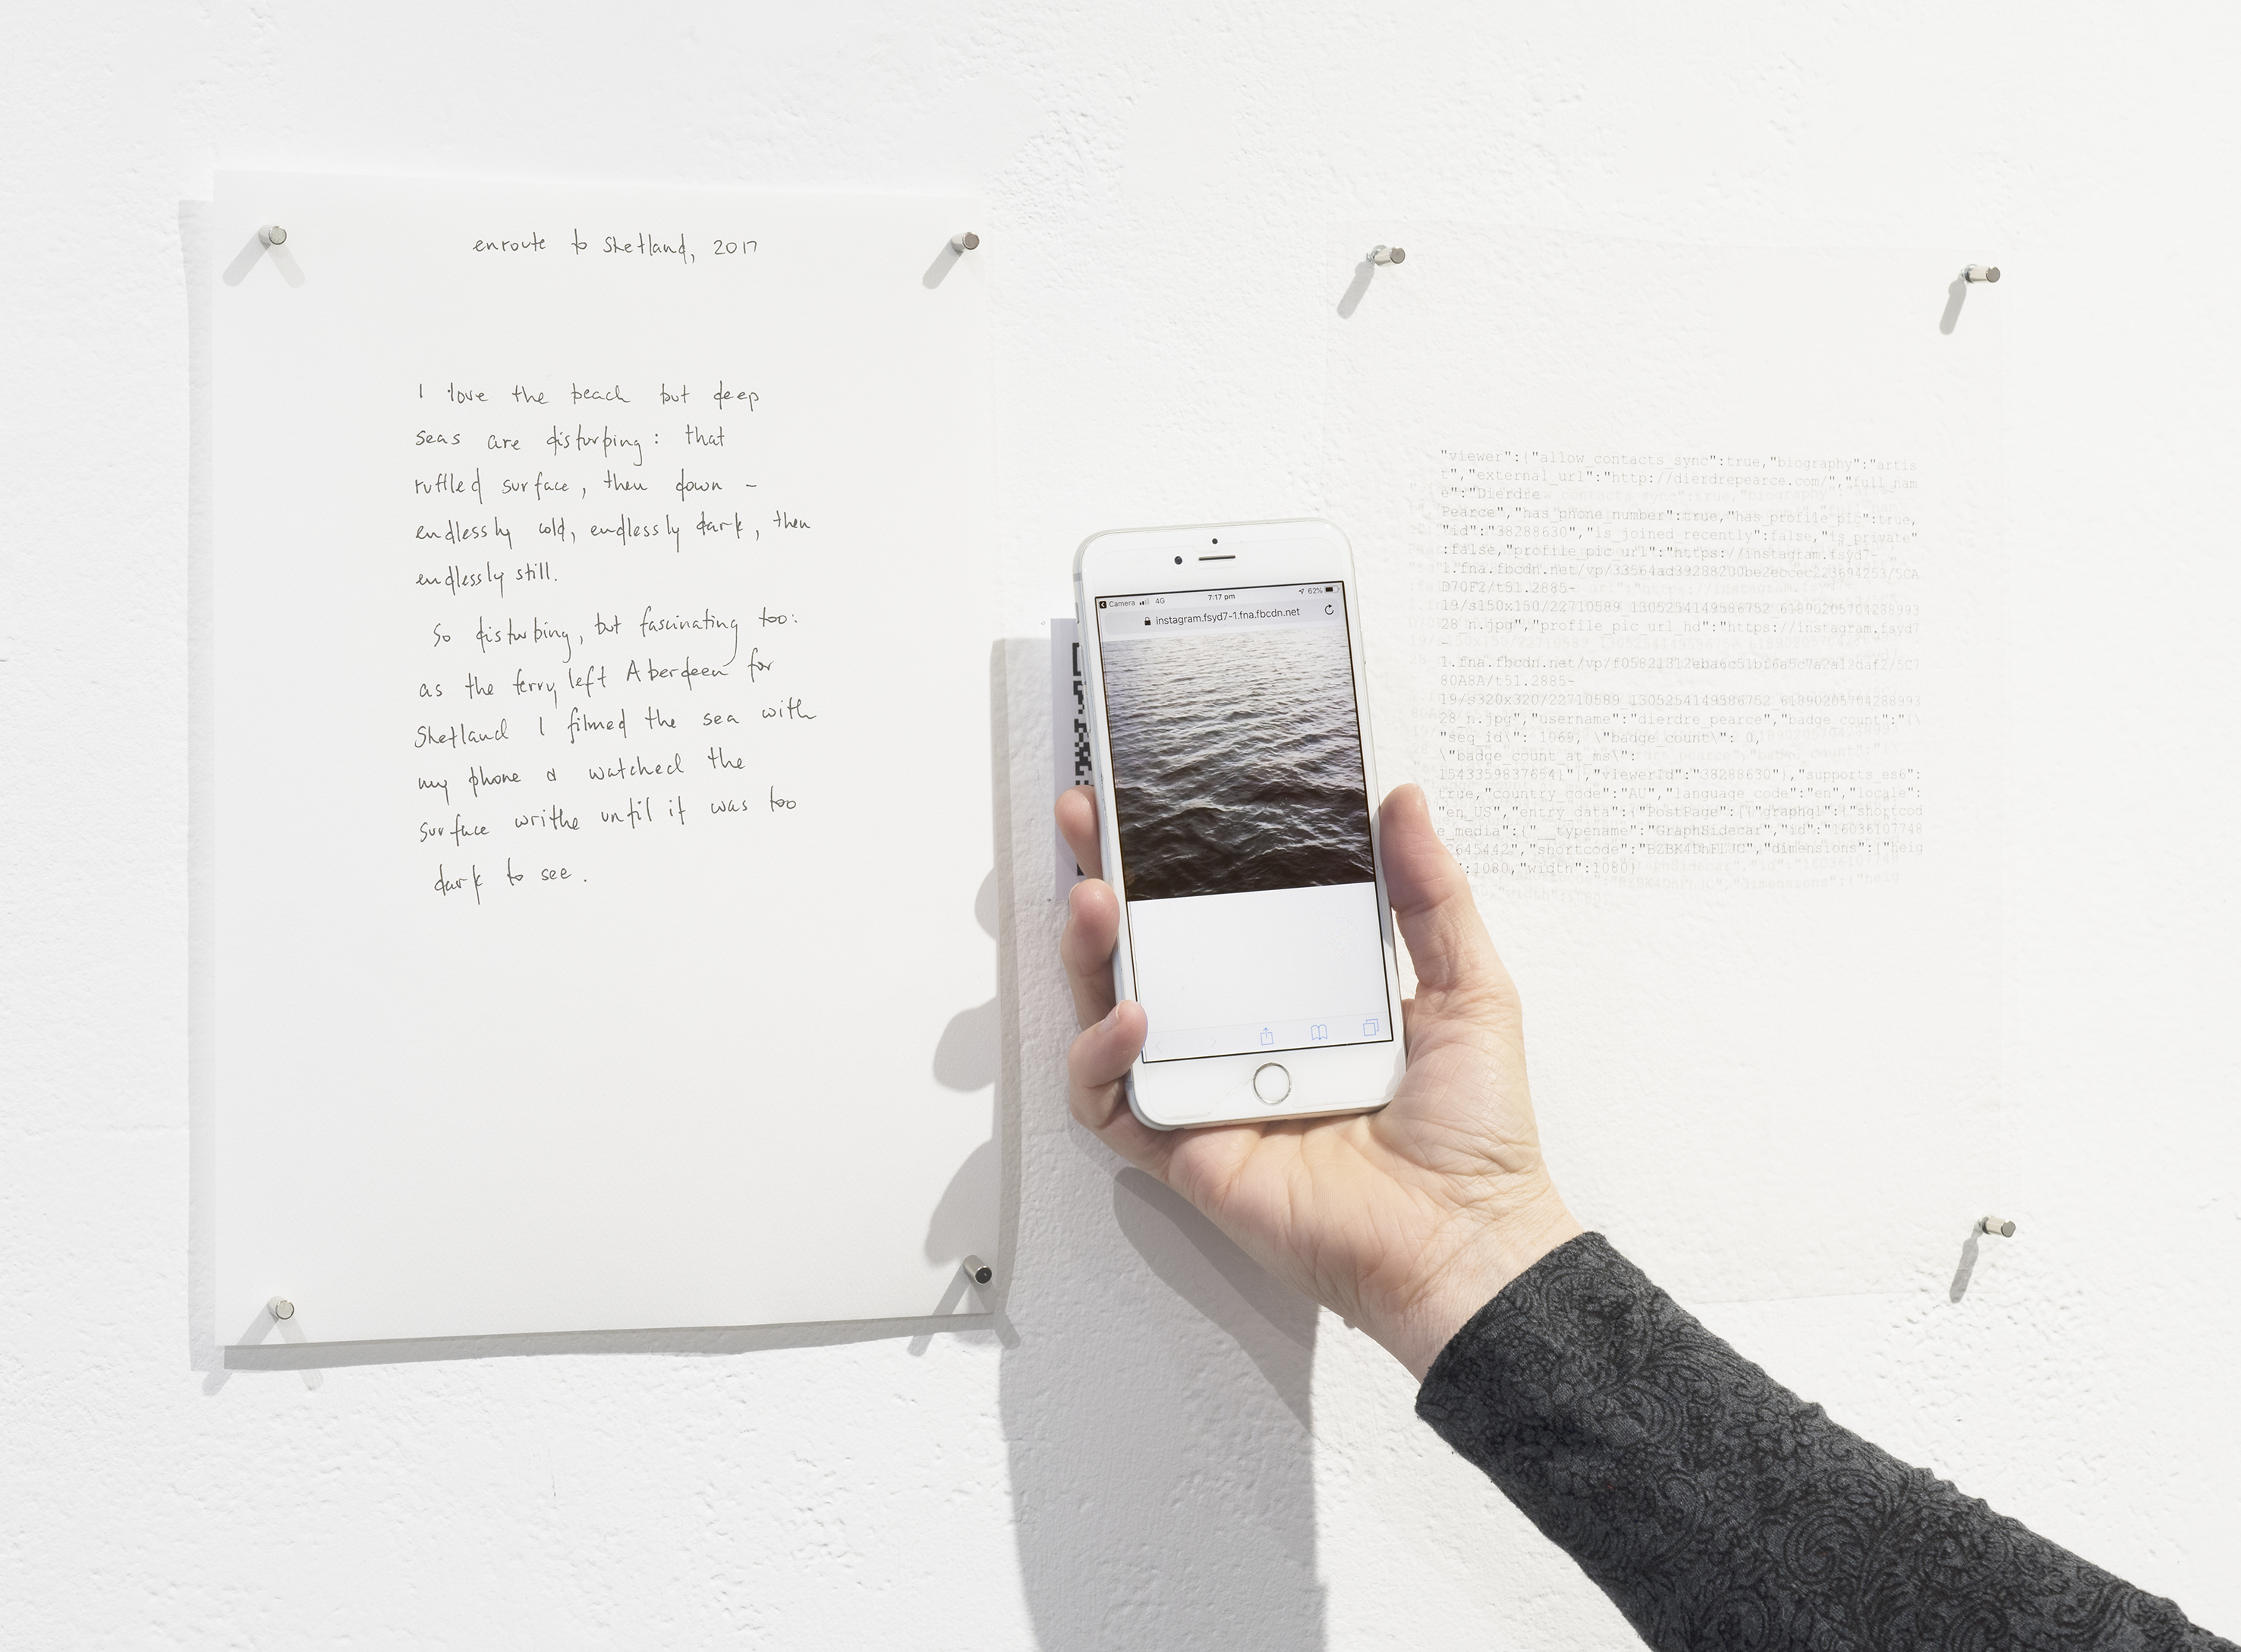 enroute to Shetland, 2017
I love the beach but deep
seas are disturbing: that
ruffled surface, then down -
endlessly cold, endlessly dark, then
endlessly still.
So disturbing, but fascinating too:
as the ferry left Aberdeen for
Shetland I filmed the sea with
my phone & watched the
surface writhe until it was too
dark to see.
Camera 4G 7:17 pm 62%
instagram.fsyd7-1.fna.fbcdn.net
"viewer":{"allow_contacts_sync":true,"biography":"artis
t","external_url":"http://dierdrepearce.com/","full_nam
e":"Dierdre
Pearce","has_phone_number":true,"has_profile_pic":true,
"id":"38288630","is_joined_recently":false,"is_private"
:false,"profile_pic_url":"https://instagram.fsyd7-
1.fna.fbcdn.net/vp/33564ad39288200be2ebcec223694253/5CA
D70F2/t51.2885-
19/s150x150/22710589_1305254149586752_61890205704288993
28_n.jpg","profile_pic_url_hd":"https://instagram.fsyd7
-
1.fna.fbcdn.net/vp/
80A8A/t51.2885-
19/s320x320/22710589_1305254149586752_61890205704288993
28_n.jpg","username":"dierdre_pearce","badge_count":"{\
"seq_id\": 1069, \"badge_count\": 0,
\"badge_count_at_ms\":
1543359837654}"},"viewerId":"38288630"},"supports_es6":
true,"country_code":"AU","language_code":"en","locale":
"en_US","entry_data":{"PostPage":[{"graphql":{"shortcod
e_media":{"__typename":"GraphSidecar","id":"16036107748
2645442","shortcode":"BZBK4DhFLJC","dimensions":{"heig
:1080,"width":1080}